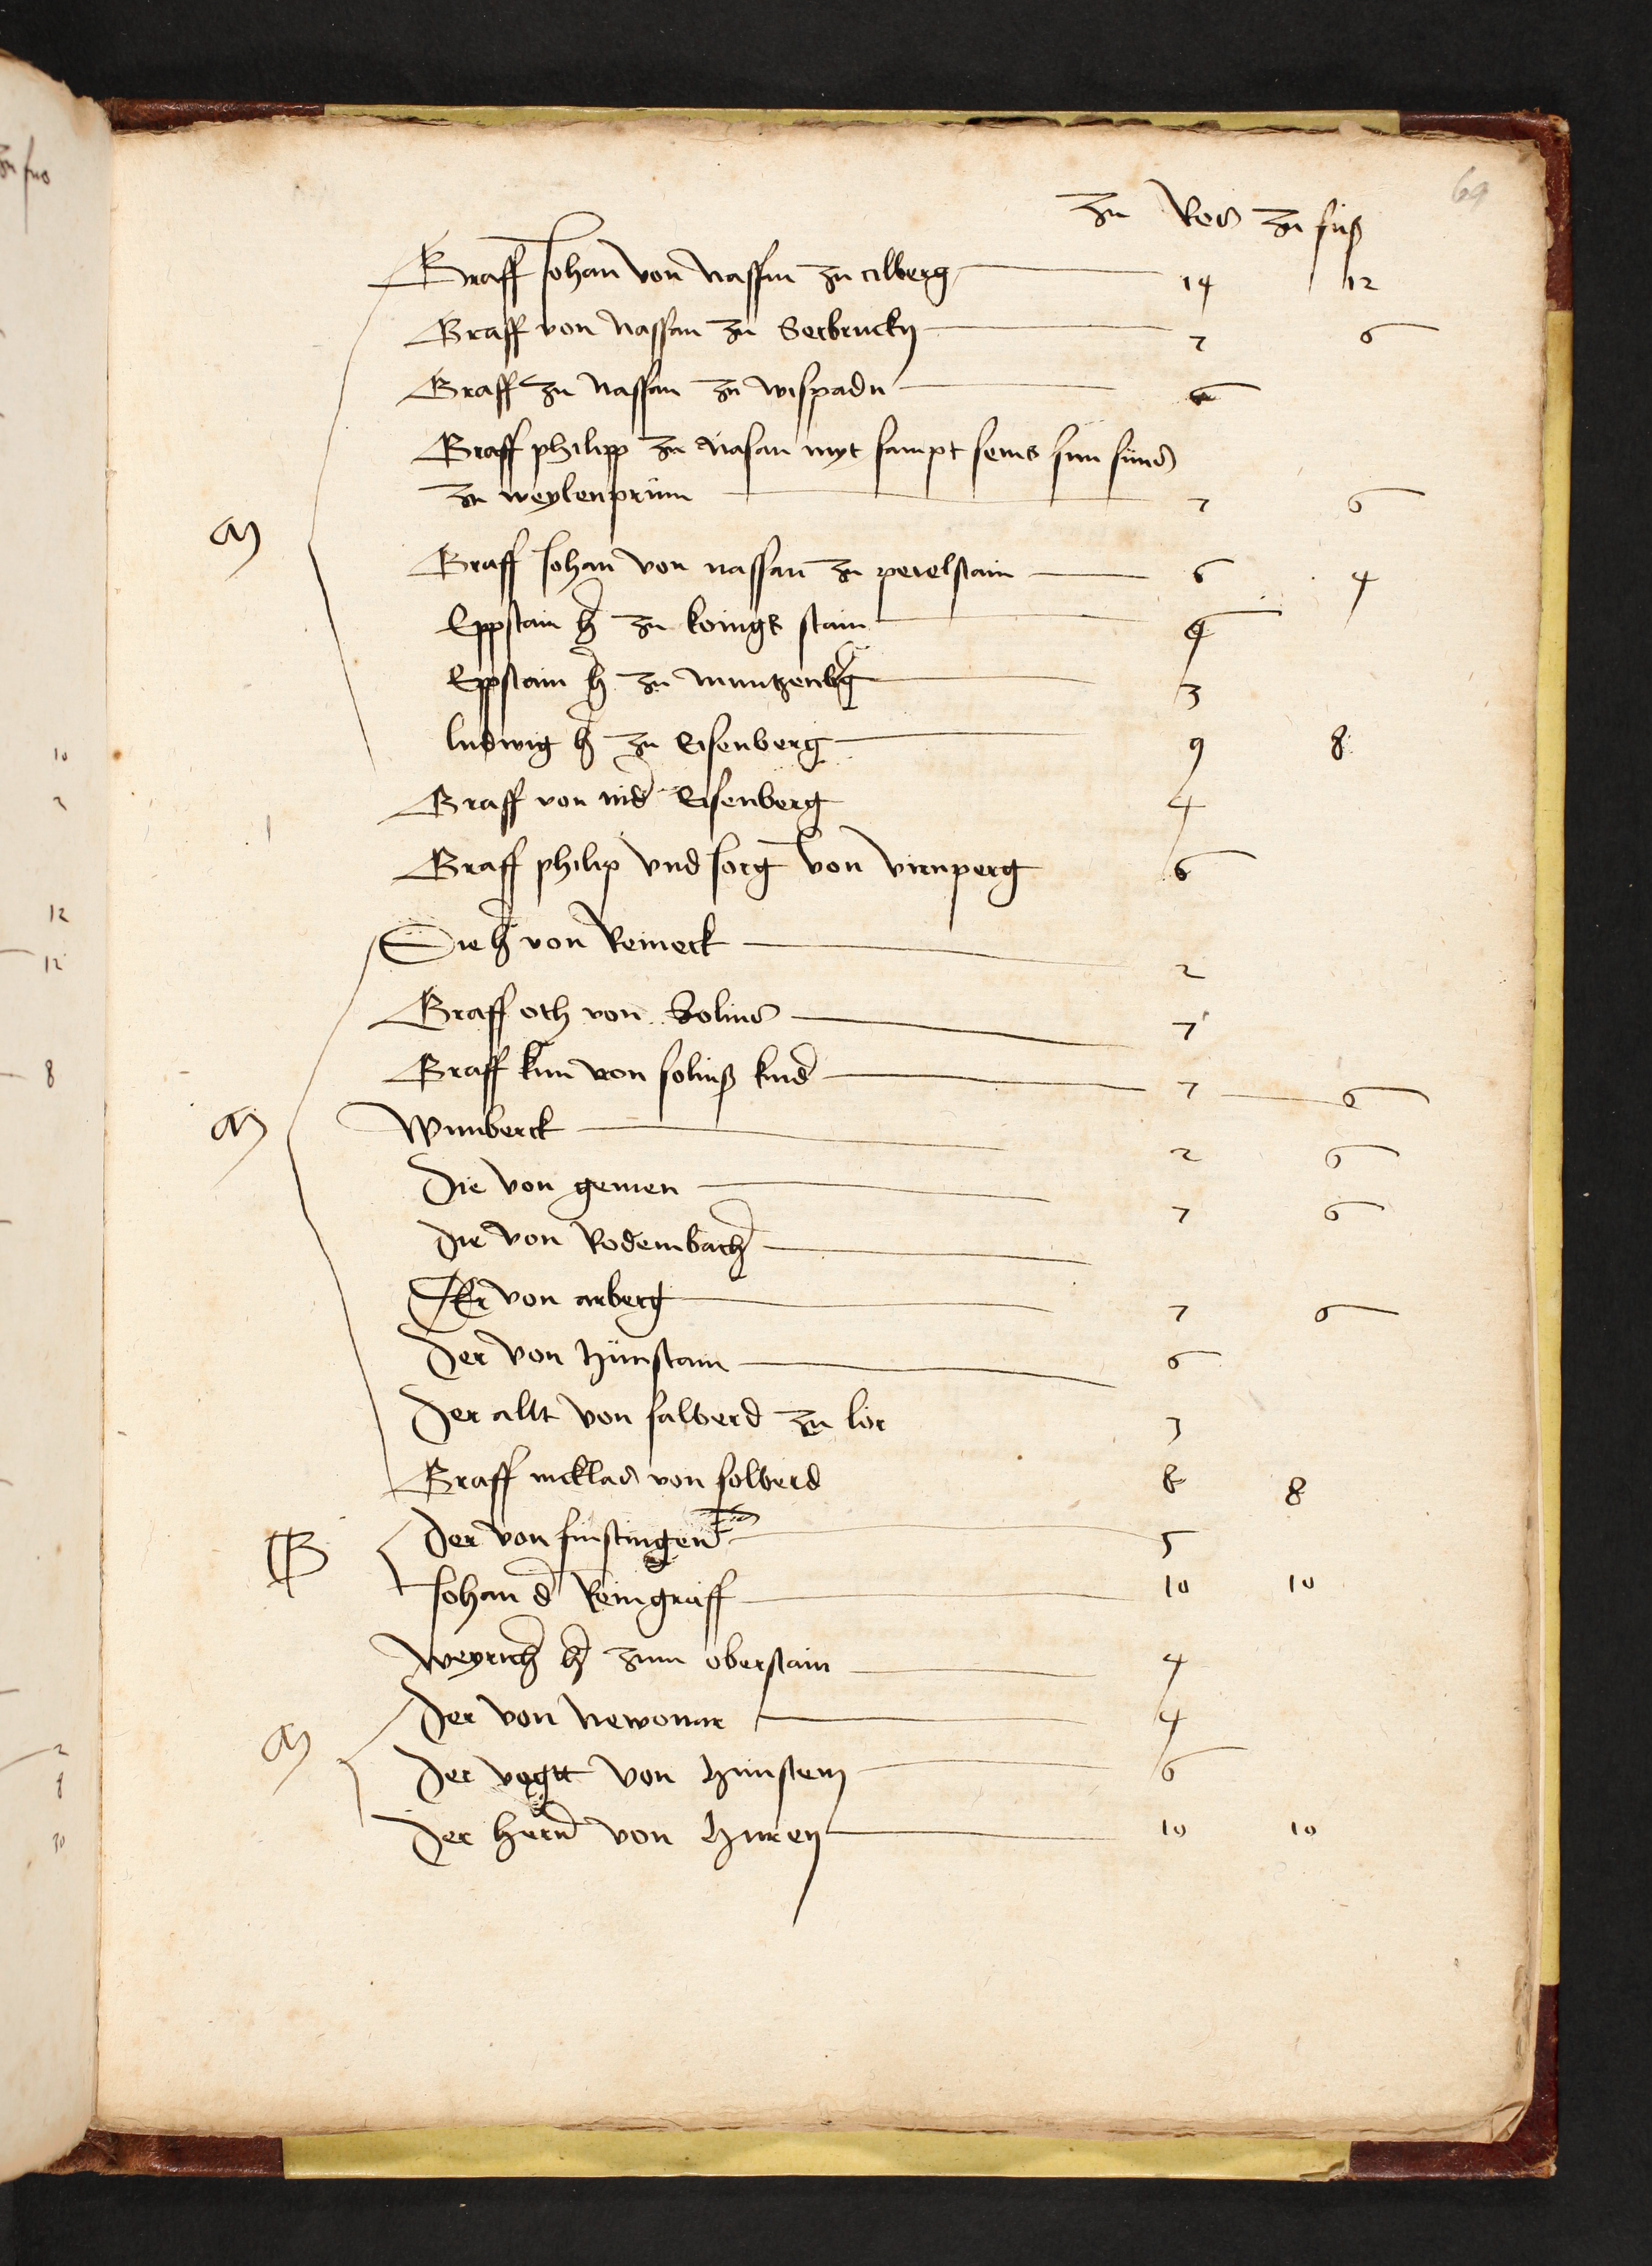 69
zu Ros zu fuß
Graff Johan von Nassau zu cilberg 14 12
Graff von Nassau zu Serbruckn 7 6
Graff zu Nassau zu wispadn 6
Graff philipp zu Nasau myt sampt seins sun
zu weylenprun 7 6
M
Graff Johan von nassau zu peielstain 6 4
Eppstain h zu koingk stain 4
Eppstain h zu muntzenbg 3
ludwig h zu Eisenberg 9 8
Graff von nid Eisenberg 4
Graff philip vnd Jorg von virnperg 6
Die h von Reineck 2
Graff oth von Solms 7
Graff kun von solmß kind 7 6
M
Wunberck 2 6
Die von gemen 7 6
Die von Rodembach
Der von arberg 7 6
Der von Hunstain 6
Der allt von salberd zu lor 3
Graff nicklas von solberd 8 8
B
Der von finstingen 5
Johan d Reingraff 10 10
Weyrich h zum oberstain 4
Der von Newonar 4
M
Der vogtt von Hunsteyn 6
Der hern von Huren 10 10